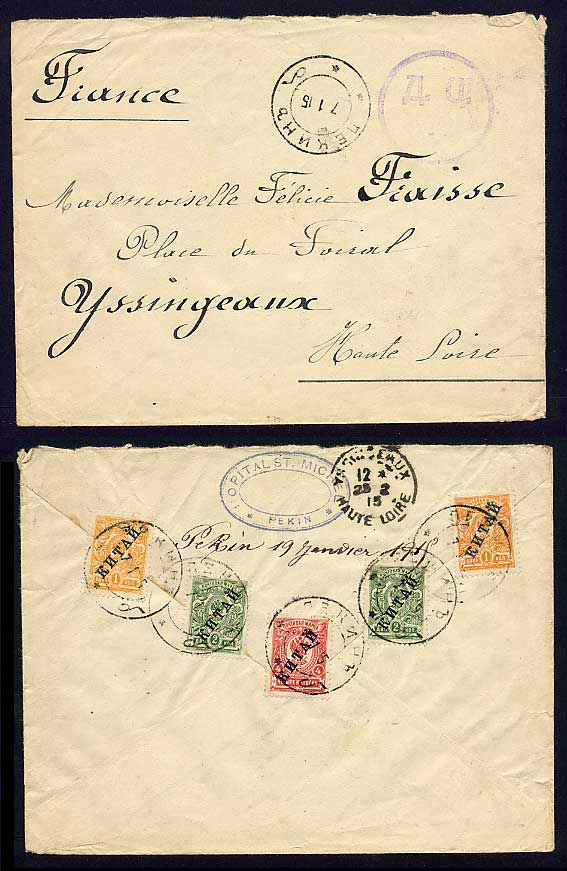 France
ПЕКИНЪ
7 1 15
Д. Ц.
Mademoiselle Félicie Fraisse
Place du Foiral
Yssingeaux
Haute Loire
OPITAL ST. MICHEL
* PEKIN *
YSSINGEAUX
12 *
23 2
15
HAUTE LOIRE
Pekin 19 Janvier 1915
КИТАЙ
1
КИТАЙ
1
КИТАЙ
2
КИТАЙ
2
КИТАЙ
4
ПЕКИНЪ